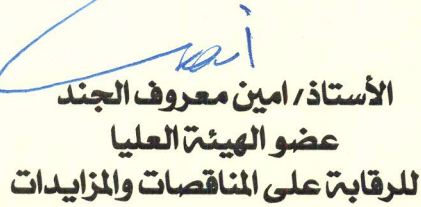 الأستاذ/ امين معروف الجند
عضو الهيئة العليا
للرقابة على المناقصات والمزايدات